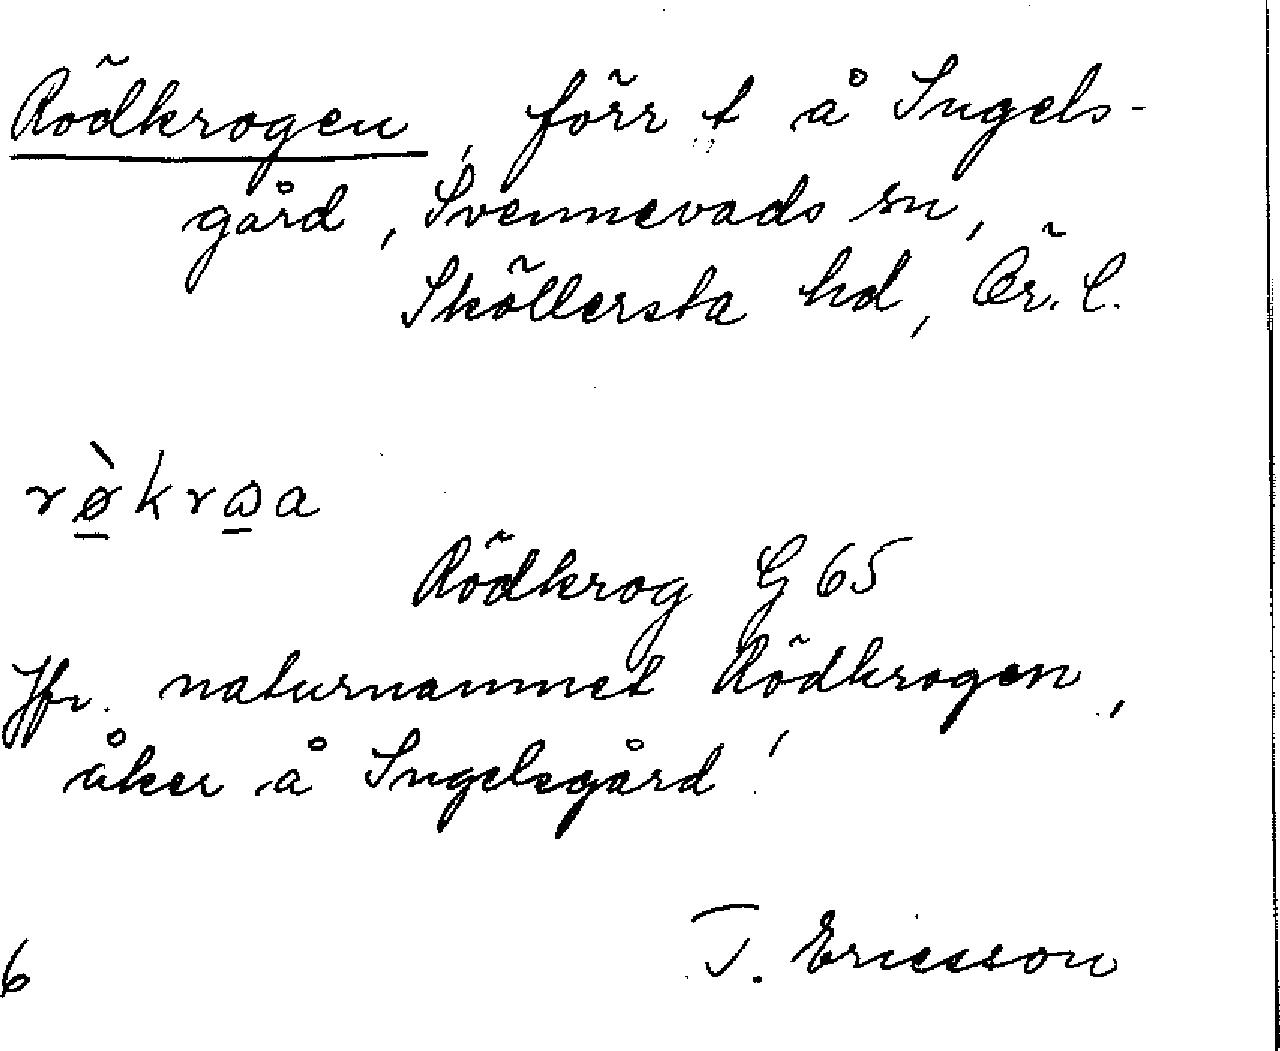 Rödkrogen, förr t å Ingels-
gård, Svennevads sn,
Sköllersta hd, Ör. l.
rø̀krɷa
Rödkrog G 65
Jfr. naturnamnet Rödkrogen,
åker å Ingelsgård!
6
T. Ericsson